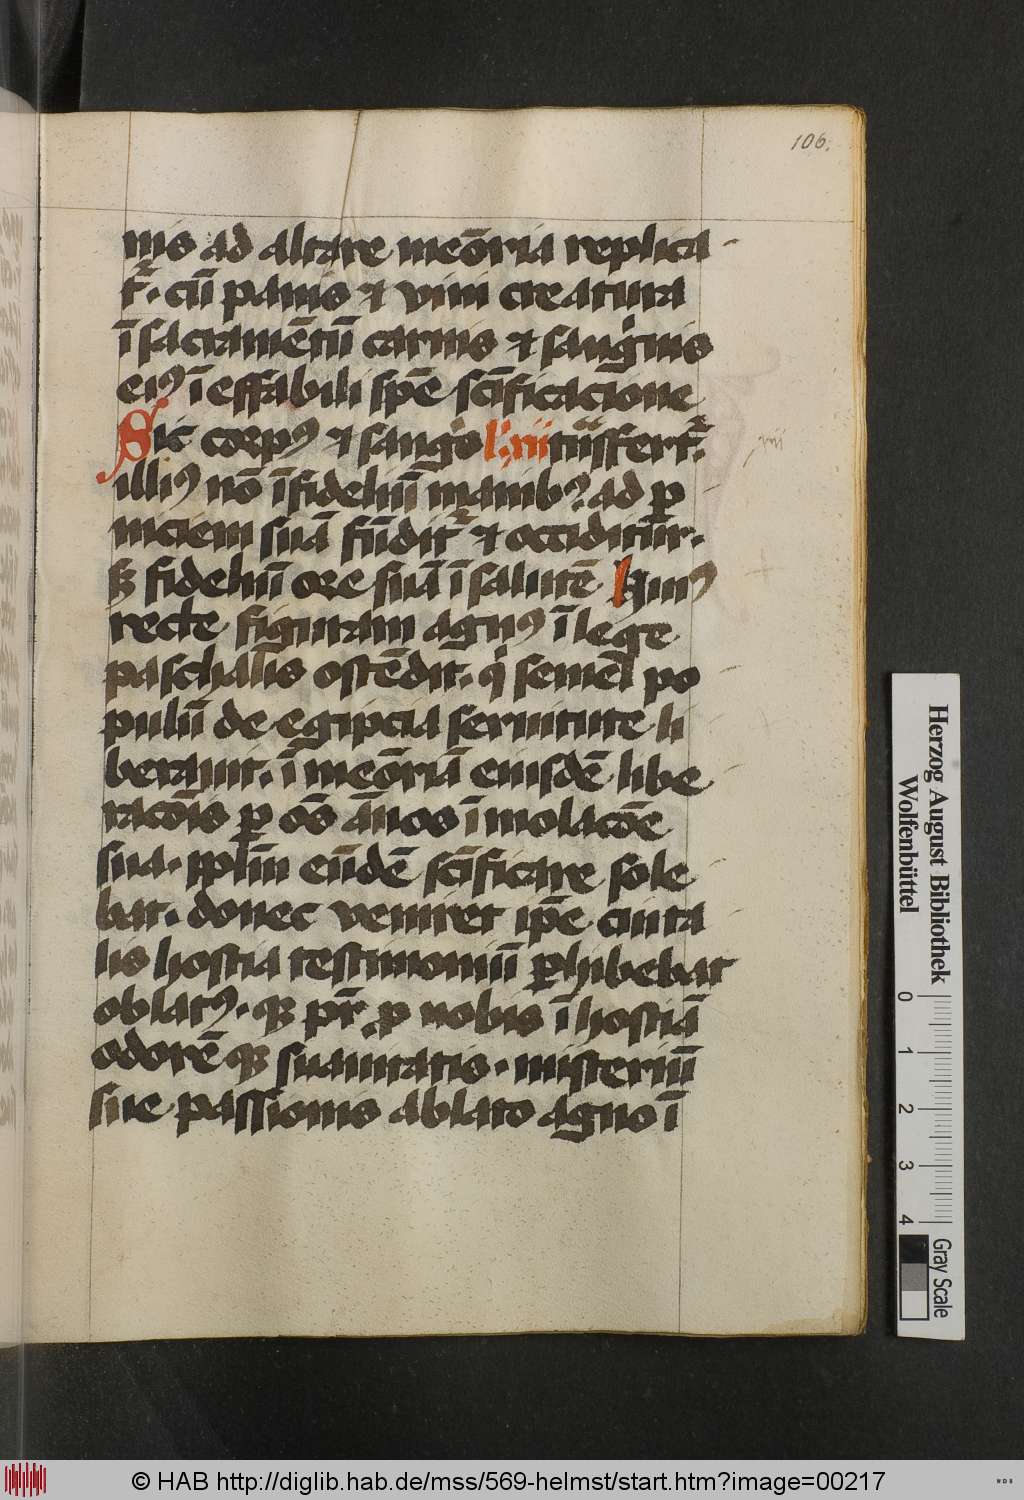 106.
nis ad altare meōria replica
t᷑. cū panis ⁊ vini creatura
ī sacramētū carnis ⁊ sangͥnis
eiꝰ īeffabili spē scīficacione
Sic corpꝰ ⁊ sangͥs L xii
illiꝰ nō īfideliū manibꝰ ad ꝑ
niciem suā fūdit᷑ ⁊ occiditur.
sꝫ fideliū ore suā ī salutē huiꝰ
recte figuram agnꝰ ī lege
paschalis ostēdit. qͥ semel po
pulū de egipcia seruitute li
berauit. ī meōriā eiusdē libe
racōis ꝑ oēs ānos īmolacōe
sua. pplm̄ eūdē scīficare sole
bat. donec veniret ip̄e cui ta
lis hostia testimoniū ꝑhibebat
oblatꝰ. qꝫ pr̄i ꝓ nobis ī hostiā
odorē qꝫ suauitatis. misteriū
sue passionis ablato agno ī
Herzog August Bibliothek
Wolfenbüttel
0 1 2 3 4
Gray Scale
© HAB http://diglib.hab.de/mss/569-helmst/start.htm?image=00217